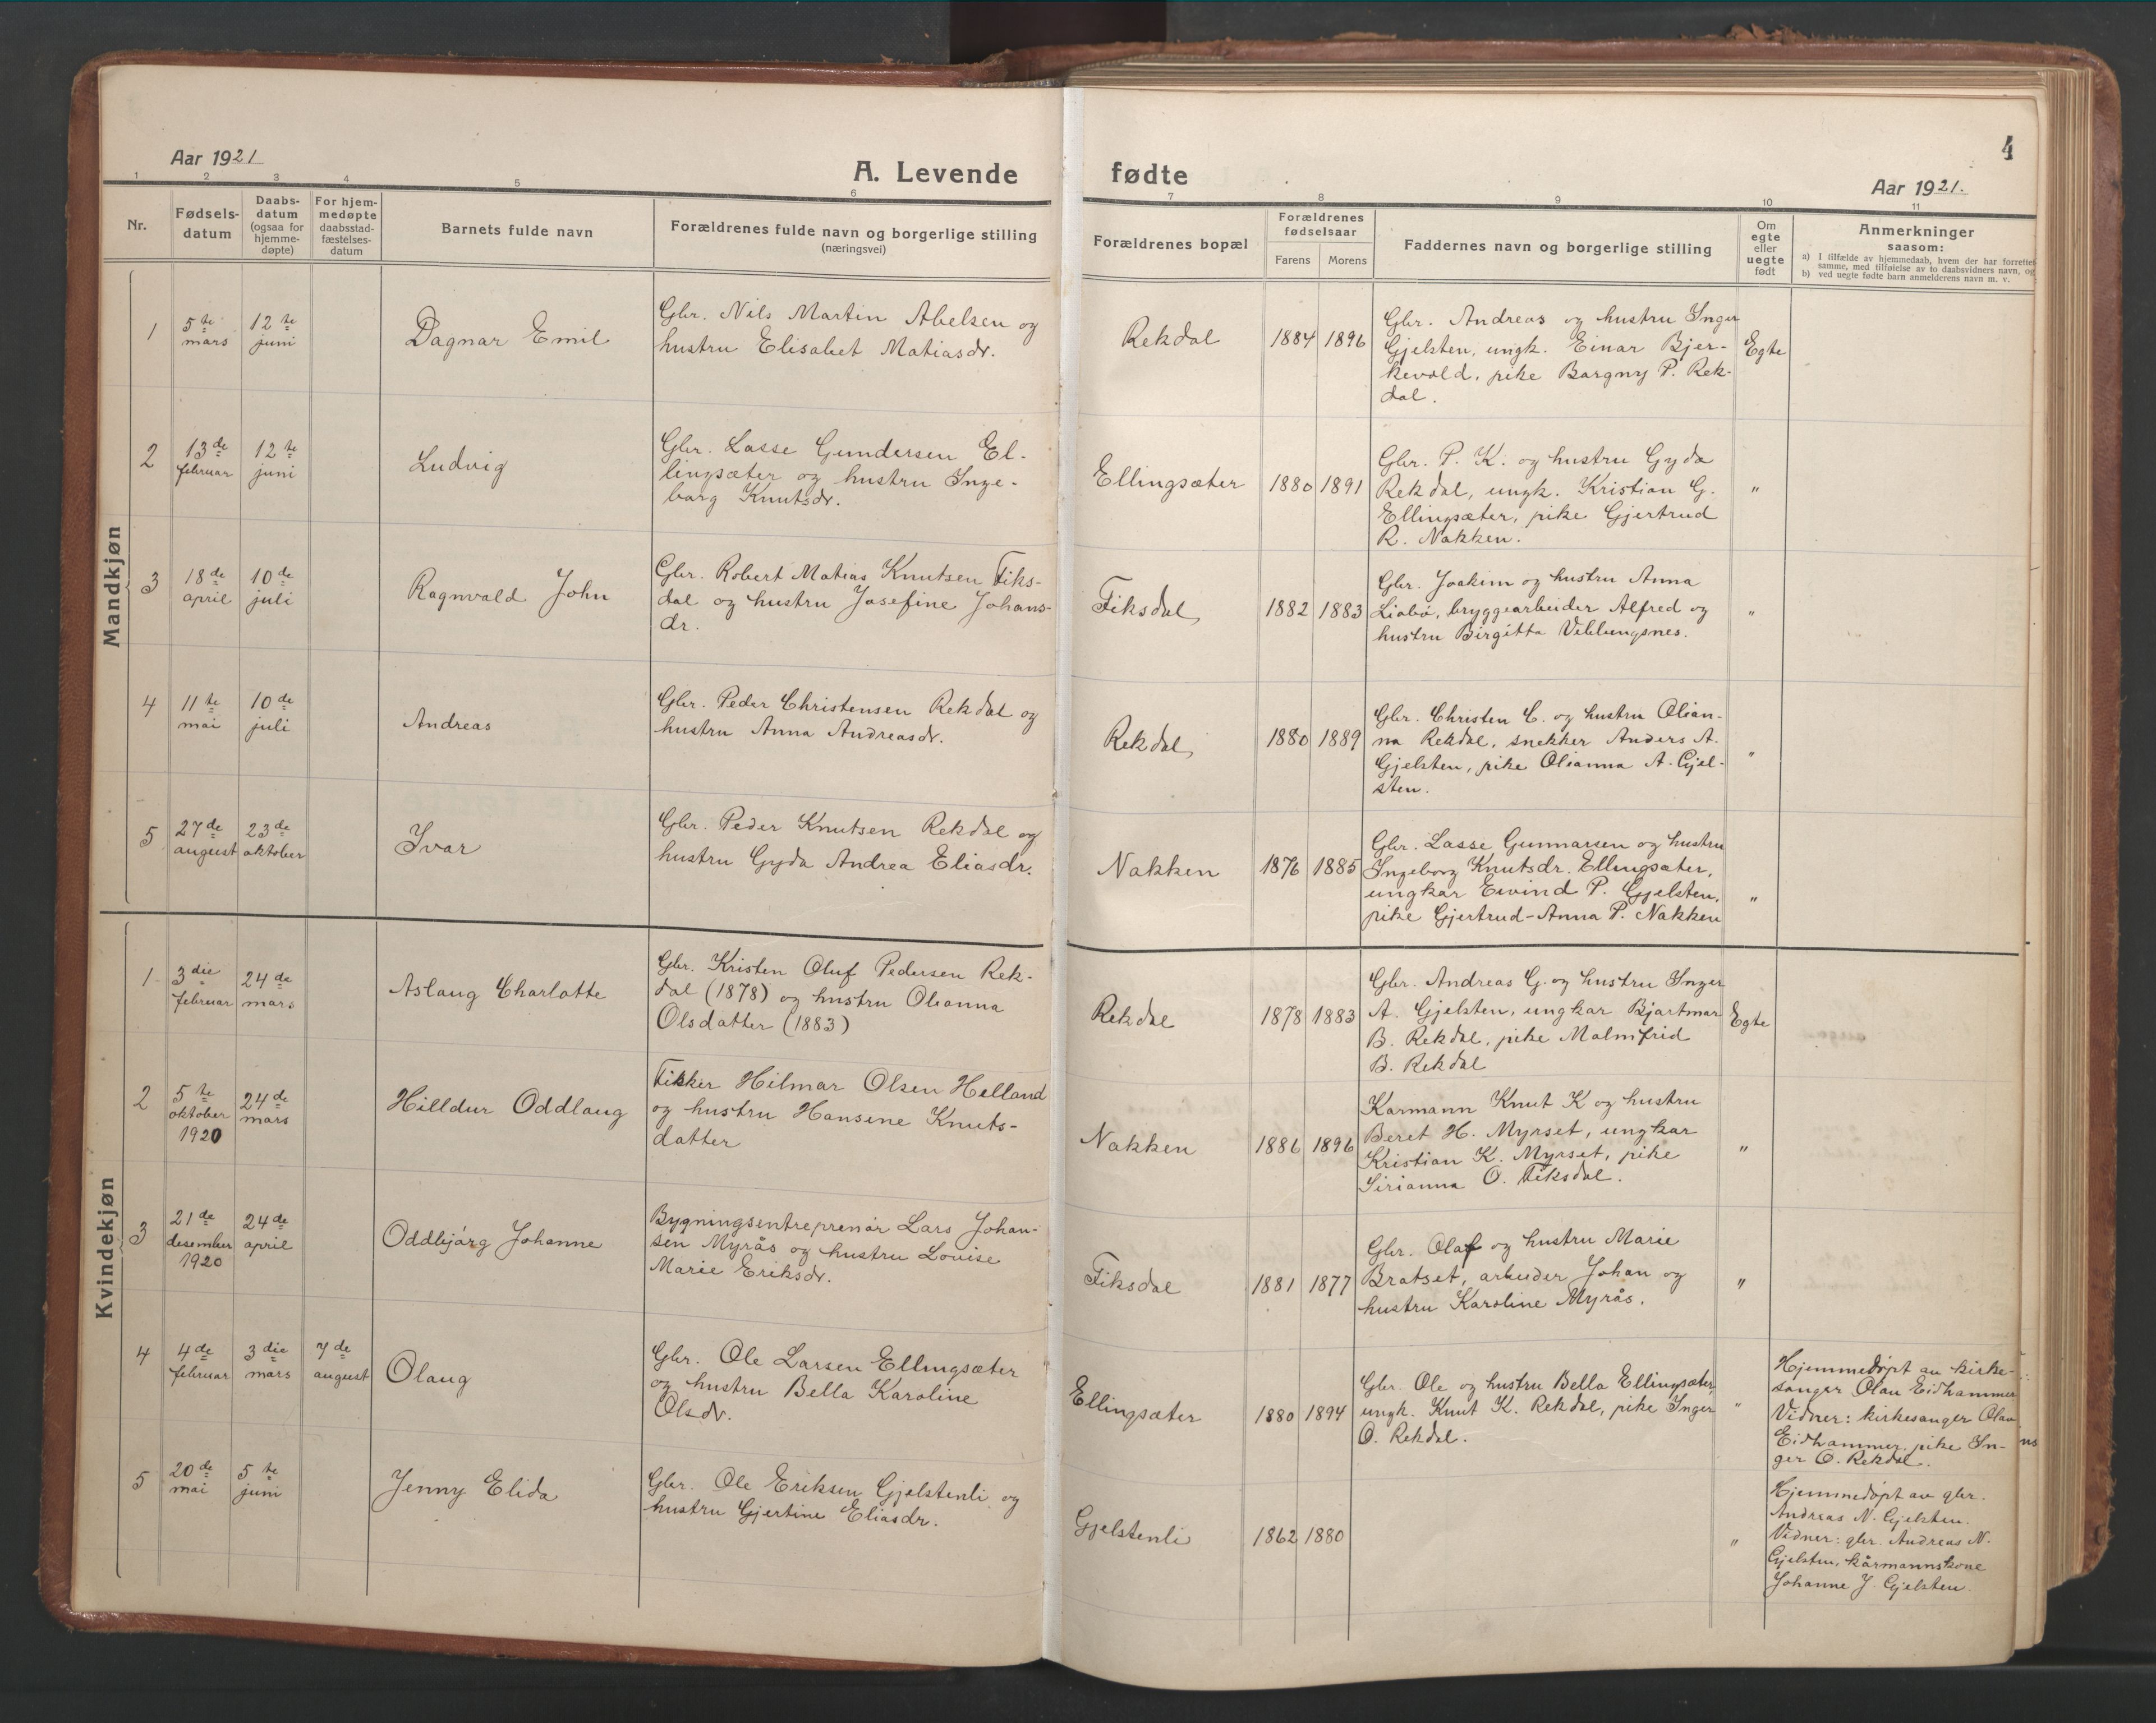 4
Aar 1921
A. Levende fødte
Aar 1921.
1 2 3 4 5 6 7 8 9 10 11
Nr.
Fødsels-
datum
Daabs-
datum
(ogsaa for
hjemme-
døpte)
For hjem-
medøpte
daabsstad-
fæstelses-
datum
Barnets fulde navn
Forældrenes fulde navn og borgerlige stilling
(næringsvei)
Forældrenes bopæl
Forældrenes
fødselsaar
Farens Morens
Faddernes navn og borgerlige stilling
Om
egte
eller
uegte
født
Anmerkninger
saasom:
a) I tilfælde av hjemmedaab, hvem der har forrettet
samme, med tilføielse av to daabsvidners navn, og
b) ved uegte fødte barn anmelderens navn m. v.
Mandkjøn
1
5te
mars
12te
juni
Dagnar Emil
Gbr. Nils Martin Abelsen og
hustru Elisabet Matiasdr.
Rekdal
1884 1896
Gbr. Andreas og hustru Inger
Gjelsten, ungk. Einar Bjer-
kevold, pike Borgny P. Rek-
dal.
Egte
2
13de
februar
12te
juni
Ludvig
Gbr. Lasse Gundersen El-
lingsæter og hustru Inge-
borg Knutsdr.
Ellingsæter
1880 1891
Gbr. P. K. og hustru Gyda
Rekdal, ungk. Kristian G.
Ellingsæter, pike Gjertrud
R. Nakken.
"
3
18de
april
10de
juli
Ragnvald John
Gbr. Robert Matias Knutsen Fiks-
dal og hustru Josefine Johans-
dr.
Fiksdal
1882 1883
Gbr. Joakim og hustru Anna
Liabø, bryggearbeider Alfred og
hustru Birgitta Veblungsnes.
"
4
11te
mai
10de
juli
Andreas
Gbr. Peder Christensen Rekdal og
hustru Anna Andreasdr.
Rekdal
1880 1889
Gbr. Christen C. og hustru Olian-
na Rekdal, snekker Anders A.
Gjelsten, pike Olianna A. Gjel-
sten.
"
5
27de
august
23de
oktober
Ivar
Gbr. Peder Knutsen Rekdal og
hustru Gyda Andrea Eliasdr.
Nakken
1876 1885
Gbr. Lasse Gunnarsen og hustru
Ingeborg Knutsdr. Ellingsæter,
ungkar Eivind P. Gjelsten,
pike Gjertrud-Anna P. Nakken
"
Kvindekjøn
1
3die
februar
24de
mars
Aslaug Charlotte
Gbr. Kristen Oluf Pedersen Rek-
dal (1878) og hustru Olianna
Olsdatter (1883)
Rekdal
1878 1883
Gbr. Andreas G. og hustru Inger
A. Gjelsten, ungkar Bjartmar
B. Rekdal, pike Malmfrid
B. Rekdal
Egte
2
5te
oktober
1920
24de
mars
Hilldur Oddlaug
Fisker Hilmar Olsen Helland
og hustru Hansine Knuts-
datter
Nakken
1886 1896
Karmann Knut K og hustru
Beret H. Myrset, ungkar
Kristian K. Myrset, pike
Sirianna O. Fiksdal.
"
3
21de
desember
1920
24de
april
Oddbjørg Johanne
Bygningsentreprenør Lars Johan-
sen Myrås og hustru Louise
Marie Eriksdr.
Fiksdal
1881 1877
Gbr. Olaf og hustru Marie
Bratset, arbeider Johan og
hustru Karoline Myrås.
"
4
4de
februar
3die
mars
7de
august
Olaug
Gbr. Ole Larsen Ellingsæter
og hustru Bella Karoline
Olsdr.
Ellingsæter
1880 1894
Gbr. Ole og hustru Bella Ellingsæter,
ungk. Knut K. Rekdal, pike Inger
O. Rekdal.
"
Hjemmedøpt av kirke-
sanger Olav Eidhammer
Vidner: kirkesanger Olav
Eidhammer, pike In-
ger O. Rekdal.
5
20de
mai
5te
juni
Jenny Elida
Gbr. Ole Eriksen Gjelstenli og
hustru Gjertine Eliasdr.
Gjelstenli
1862 1880
"
Hjemmedøpt av gbr.
Andreas N. Gjelsten.
Vidner: gbr. Andreas N.
Gjelsten, kårmannskone
Johanne J. Gjelsten.